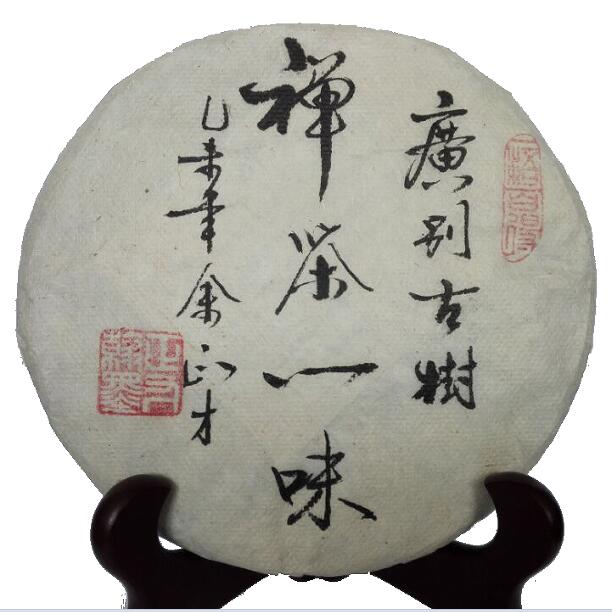 廣别古樹
禪茶一味
乙未年余正才